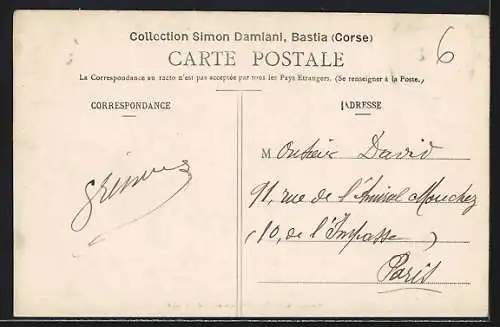 Collection Simon Damiani, Bastia (Corse)
6
CARTE POSTALE
La Correspondance au recto n'est pas acceptée par tous les Pays Etrangers. (Se renseigner à la Poste.)
CORRESPONDANCE
ADRESSE
Monsieur David
91, rue de l'Amiral Mouchez
(10, de l'Impasse)
Paris